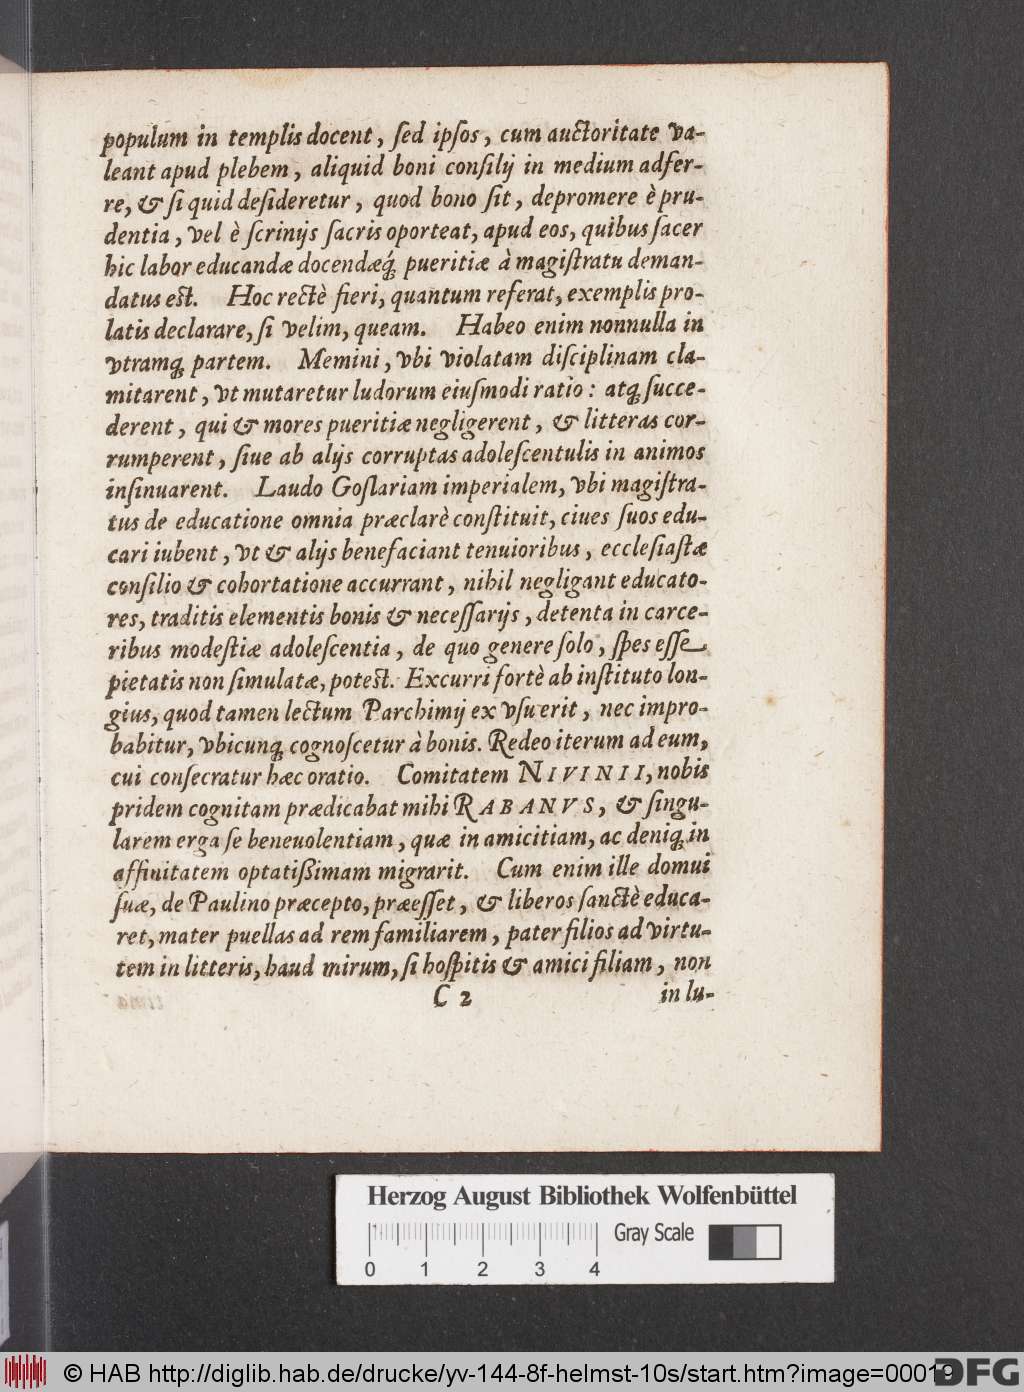 populum in templis docent, ſed ipſos, cum auctoritate va-
leant apud plebem, aliquid boni conſilij in medium adfer-
re, & ſi quid deſideretur, quod bono ſit, depromere è pru-
dentia, vel è ſcrinijs ſacris oporteat, apud eos, quibus ſacer
hic labor educandæ docendæq́; pueritiæ à magiſtratu deman-
datus est. Hoc rectè fieri, quantum referat, exemplis pro-
latis declarare, ſi velim, queam. Habeo enim nonnulla in
vtramq; partem. Memini, vbi violatam diſciplinam cla-
mitarent, vt mutaretur ludorum eiuſmodi ratio: atq; ſucce-
derent, qui & mores pueritiæ negligerent, & litteras cor-
rumperent, ſiue ab alijs corruptas adoleſcentulis in animos
inſinuarent. Laudo Goſlariam imperialem, vbi magiſtra-
tus de educatione omnia præclarè conſtituit, ciues ſuos edu-
cari iubent, vt & alijs benefaciant tenuioribus, eccleſiaſtæ
conſilio & cohortatione accurrant, nihil negligant educato-
res, traditis elementis bonis & neceſſarijs, detenta in carce-
ribus modeſtiæ adoleſcentia, de quo genere ſolo, ſpes eſſe
pietatis non ſimulatæ, potest. Excurri fortè ab inſtituto lon-
gius, quod tamen lectum Parchimij ex vſu erit, nec impro-
babitur, vbicunq; cognoſcetur à bonis. Redeo iterum ad eum,
cui conſecratur hæc oratio. Comitatem NIVINII, nobis
pridem cognitam prædicabat mihi RABANVS, & ſingu-
larem erga ſe beneuolentiam, quæ in amicitiam, ac deniq; in
affinitatem optatißimam migrarit. Cum enim ille domui
ſuæ, de Paulino præcepto, præeſſet, & liberos ſanctè educa-
ret, mater puellas ad rem familiarem, pater filios ad virtu-
tem in litteris, haud mirum, ſi hoſpitis & amici filiam, non
C 2 in lu-
Herzog August Bibliothek Wolfenbüttel
Gray Scale
0 1 2 3 4
© HAB http://diglib.hab.de/drucke/yv-144-8f-helmst-10s/start.htm?image=00019
DFG